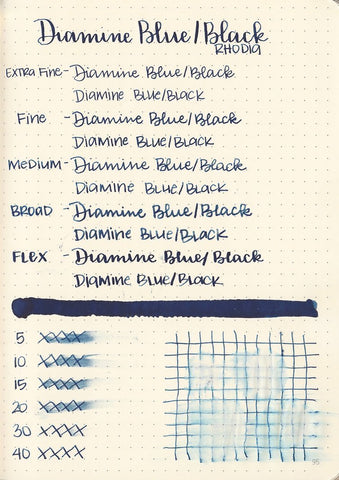 Diamine Blue/Black
RHODIA
EXTRA FINE - Diamine Blue/Black
DIAMINE BLUE/BLACK
FINE - Diamine Blue/Black
DIAMINE BLUE/BLACK
MEDIUM - Diamine Blue/Black
DIAMINE BLUE/BLACK
BROAD - Diamine Blue/Black
DIAMINE BLUE/BLACK
FLEX - Diamine Blue/Black
DIAMINE BLUE/BLACK
5 XXXX
10 XXXX
15 XXXX
20 XXXX
30 XXXX
40 XXXX
95